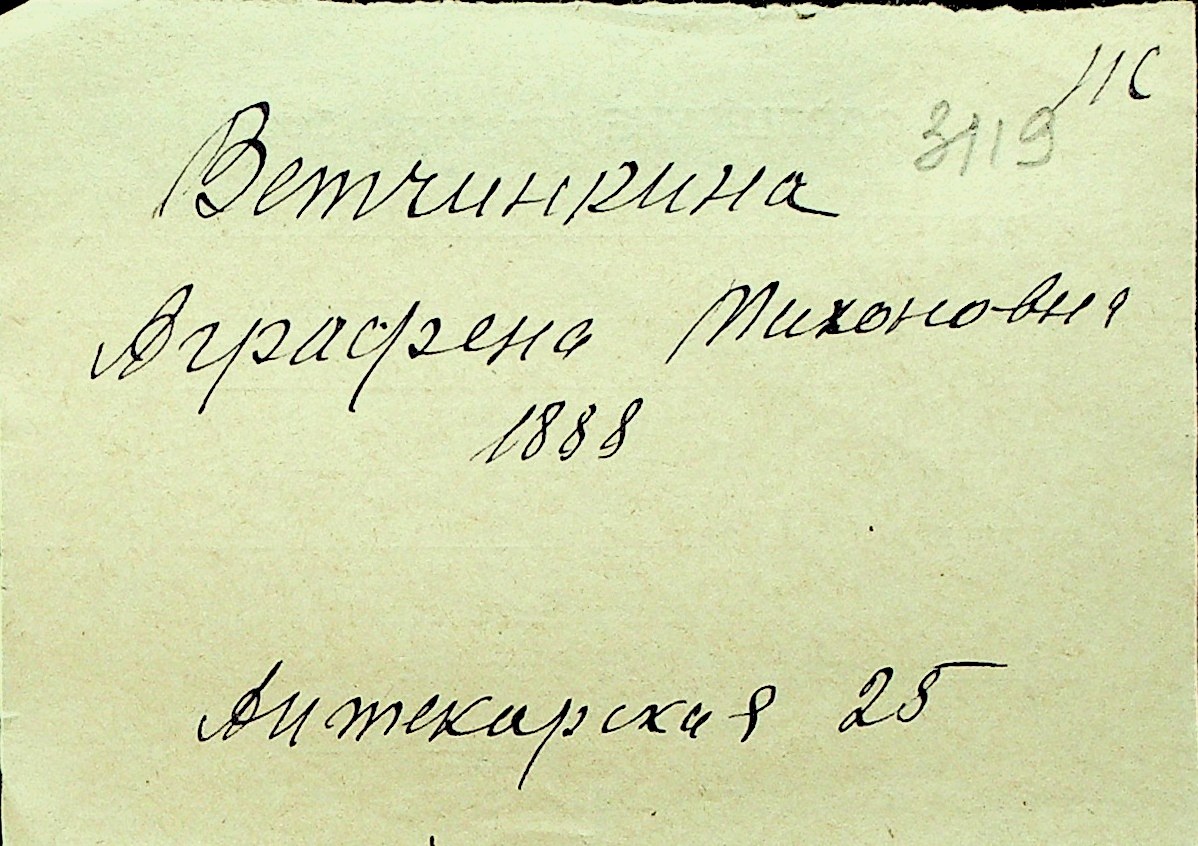 3119
Ветчинкина
Аграфена Тихоновна
1888
Аптекарская 25